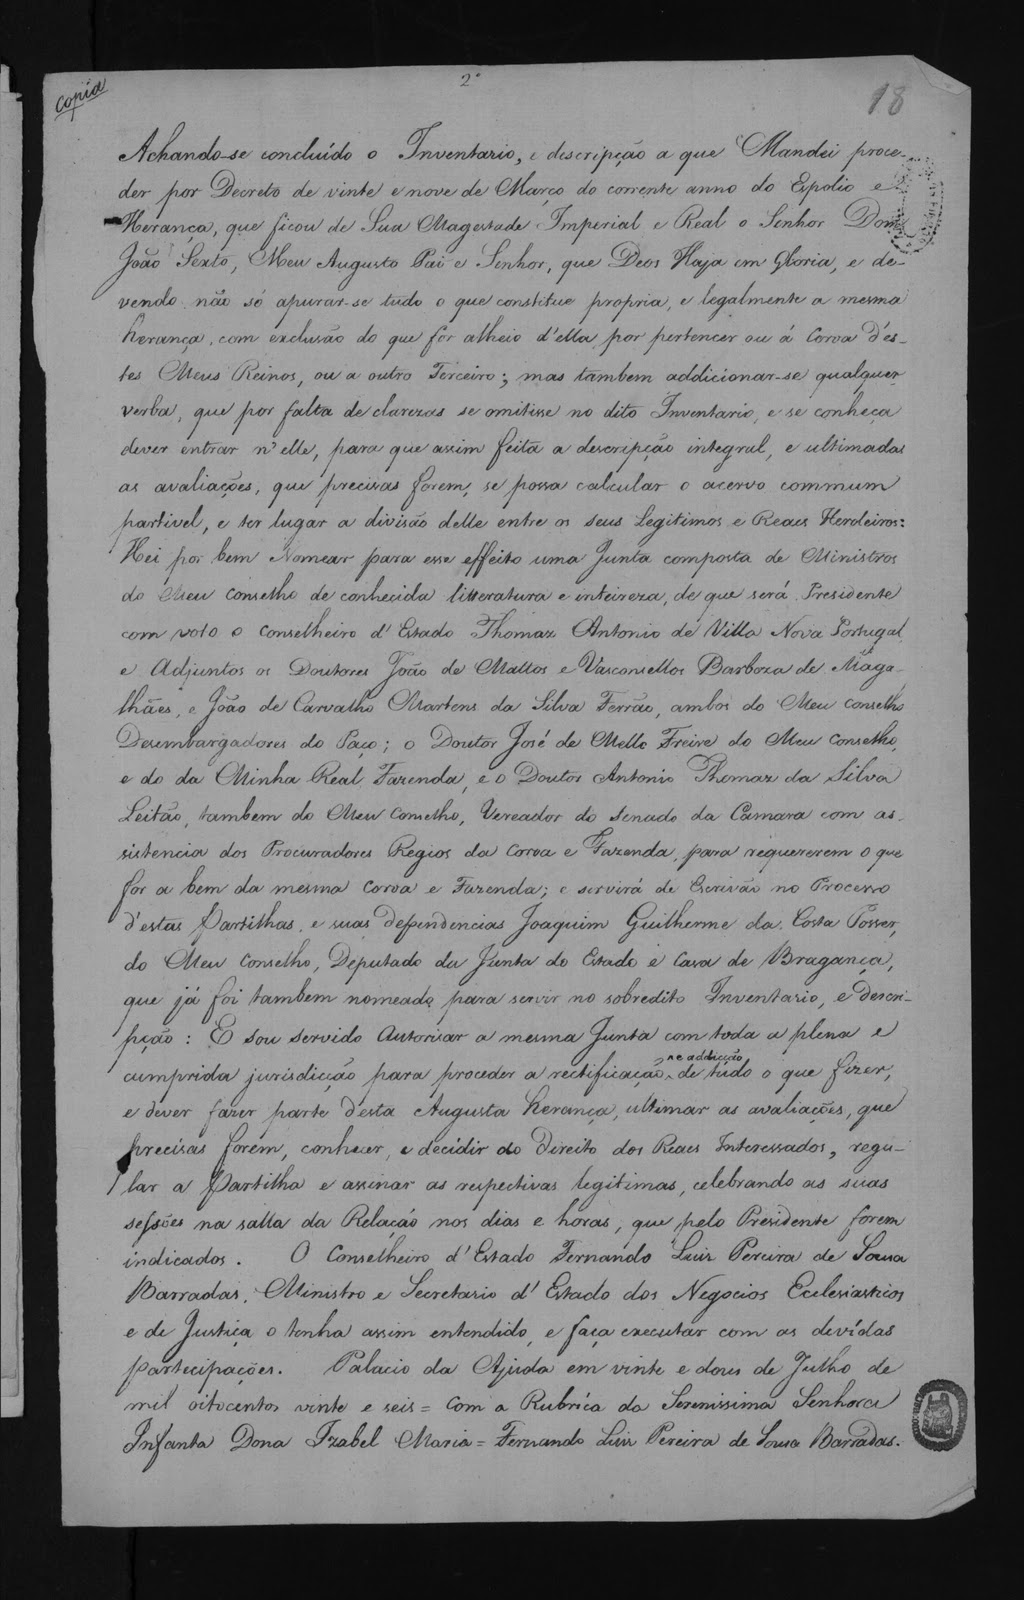 copia
2º
18
Achando-se concluído o Inventario, e descripção a que Mandei proce-
der por Decreto de vinte e nove de Março do corrente anno do Espolio e
Herança, que ficou de Sua Magestade Imperial e Real o Senhor Dom
João Sexto, Meu Augusto Pai e Senhor, que Deos Haja em Gloria, e de-
vendo não só apurar-se tudo o que constitue propria, e legalmente a mesma
herança, com exclusão do que for alheio d'ella por pertencer ou á Coroa d'es-
tes Meus Reinos, ou a outro Terceiro; mas tambem addicionar-se qualquer
verba, que por falta de clarezas se omitisse no dito Inventario, e se conheça
dever entrar n'elle, para que assim feita a descripção integral, e ultimadas
as avaliações, que precisas forem, se possa calcular o acervo commum
partivel, e ter lugar a divisão delle entre os seus Legitimos e Reaes Herdeiros:
Hei por bem Nomear para esse effeito uma Junta composta de Ministros
do Meu Conselho de conhecida litteratura e inteireza, de que será Presidente
com voto o Conselheiro d'Estado Thomaz Antonio de Villa Nova Portugal,
e Adjuntos os Doutores João de Mattos e Vasconsellos Barboza de Maga-
lhães, e João de Carvalho Martens da Silva Ferrão, ambos do Meu Conselho
Desembargadores do Paço; o Doutor José de Mello Freire do Meu Conselho,
e do da Minha Real Fazenda, e o Doutor Antonio Thomaz da Silva
Leitão, tambem do Meu Conselho, Vereador do Senado da Camara com as-
sistencia dos Procuradores Regios da Coroa e Fazenda, para requererem o que
for a bem da mesma Coroa e Fazenda; e servirá de Escrivão no Processo
d'estas Partilhas, e suas dependencias Joaquim Guilherme da Costa Posser,
do Meu Conselho, Deputado da Junta do Estado e Casa de Bragança,
que já foi tambem nomeado para servir no sobredito Inventario, e Descri-
pção: E sou servido Autorisar a mesma Junta com toda a plena e
cumprida jurisdicção para proceder a rectificação, ne addicção de tudo o que fizer,
e dever fazer parte d'esta Augusta herança, ultimar as avaliações, que
precisas forem, conhecer, e decidir do Direito dos Reaes Interessados, regu-
lar a Partilha e assinar as respectivas legitimas, celebrando as suas
sessões na salla da Relação nos dias e horas, que pelo Presidente forem
indicados. O Conselheiro d'Estado Fernando Luis Pereira de Sousa
Barradas, Ministro e Secretario d'Estado dos Negocios Ecclesiasticos
e de Justiça o tenha assim entendido, e faça executar com as devídas
partecipações. Palacio da Ajuda em vinte e dous de Julho de
mil oitocentos vinte e seis = Com a Rubríca da Serenissima Senhora
Infanta Dona Izabel Maria = Fernando Luis Pereira de Sousa Barradas.